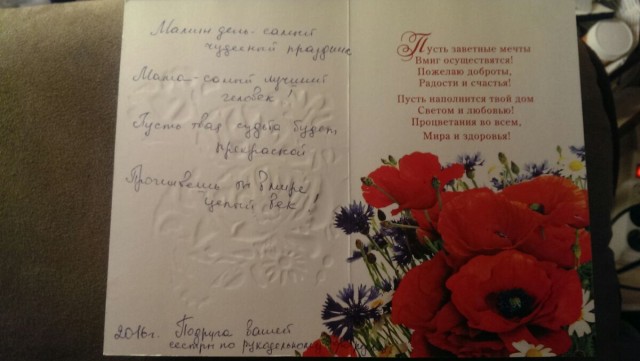 Мамин день - самый
чудесный праздник
Мама - самый лучший
человек!
Пусть твоя судьба будет,
прекрасной
Проживёшь ты в мире
целый век!
2016г. Подруга вашей
сестры по рукоделью
Пусть заветные мечты
Вмиг осуществятся!
Пожелаю доброты,
Радости и счастья!
Пусть наполнится твой дом
Светом и любовью!
Процветания во всем,
Мира и здоровья!